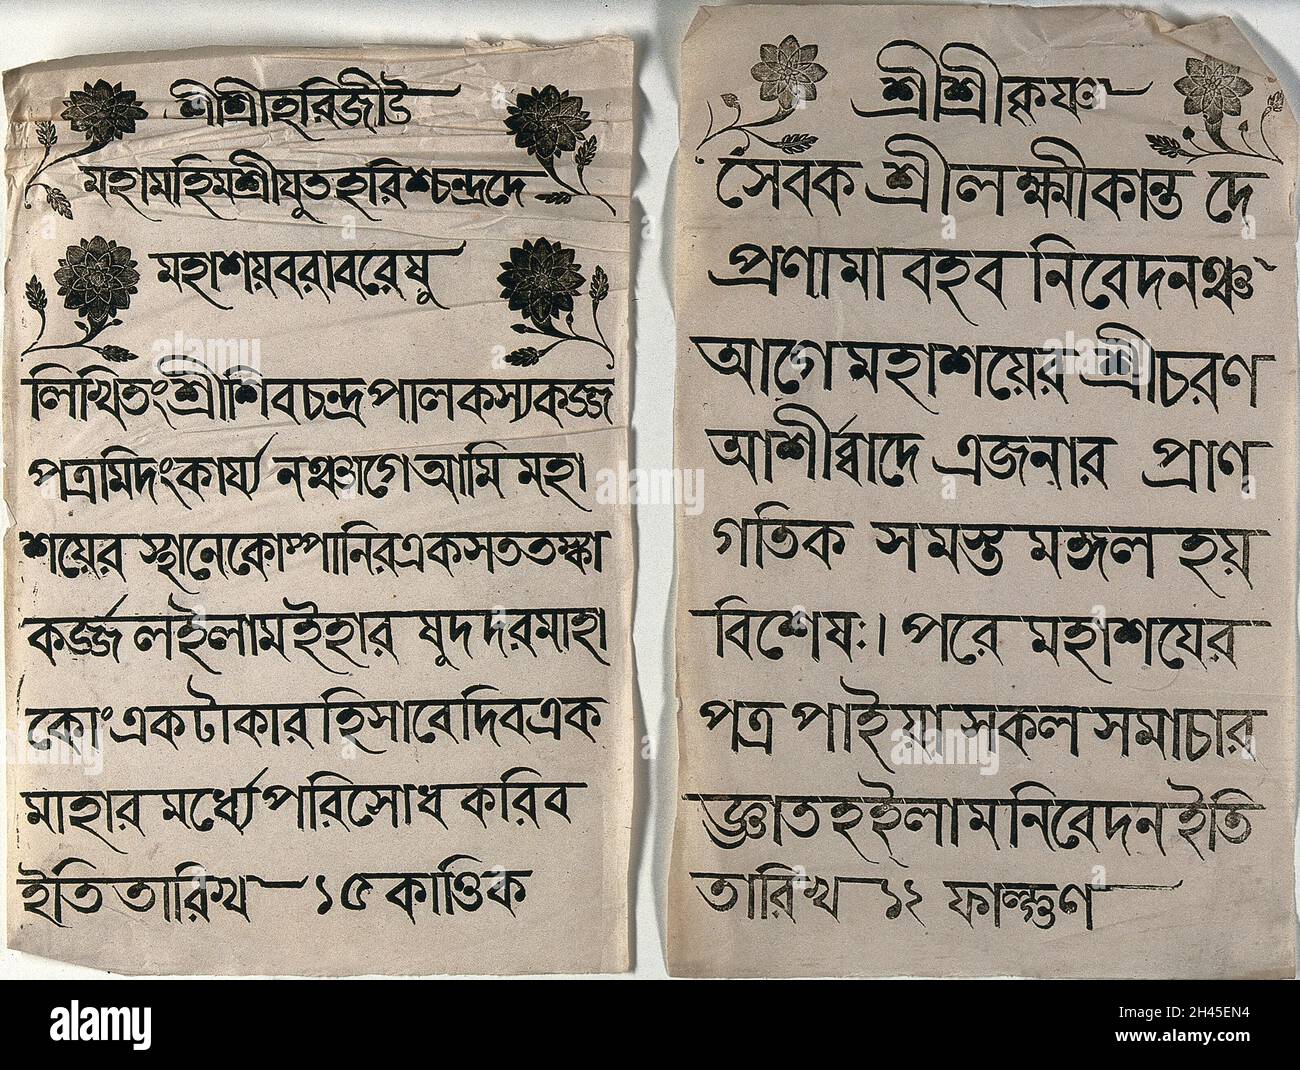 শ্রীশ্রীহরিজীউ
মহামহিমশ্রীযুতহরিশ্চন্দ্রদে
মহাশয়বরাবরেষু
লিখিতংশ্রীশিবচন্দ্রপালকস্যকর্জ্জ
পত্রমিদংকার্য্য নঞ্চাগেআমি মহা
শয়ের স্থানেকোম্পানিরএকসততঙ্কা
কর্জ্জ লইলামইহার ষুদদরমাহা
কোংএকটাকারহিসাবেদিবএক
মাহার মর্ধ্যেপরিসোধ করিব
ইতিতারিখ ১৫ কার্ত্তিক
শ্রীশ্রীকৃষ্ণ
সেবক শ্রীলক্ষ্মীকান্ত দে
প্রণামা বহব নিবেদনঞ্চ
আগেমহাশয়ের শ্রীচরণ
আশীর্ব্বাদে এজনার প্রাণ
গতিক সমস্ত মঙ্গল হয়
বিশেষঃ। পরে মহাশয়ের
পত্র পাইয়া সকল সমাচার
জ্ঞাতহইলামনিবেদন ইতি
তারিখ ১২ ফাল্গুণ
alamy
Image ID: 2H45EN4
www.alamy.com